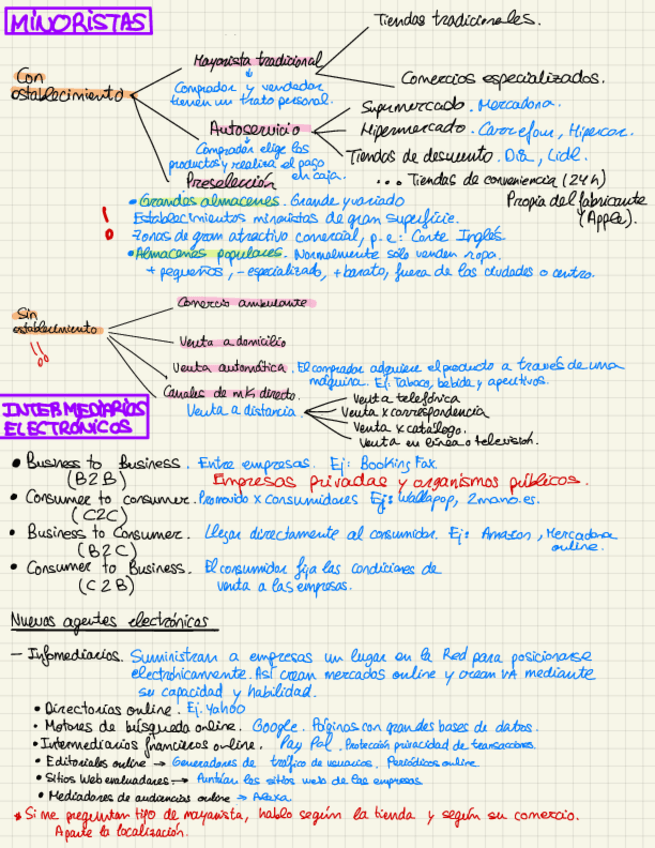 MINORISTAS
Tiendas tradicionales.
Mayorista tradicional
Comprador y vendedor
tienen un trato personal.
Comercios especializados.
Con
establecimiento
Autoservicio
Comprador elige los
productos y realiza el pago
en caja.
Supermercado. Mercadona.
Hipermercado. Carrefour, Hipercor.
Tiendas de descuento. Dia, Lidl.
... Tiendas de conveniencia (24h)
Propia del fabricante
(Apple).
Preselección
• Grandes almacenes. Grande y variado
Establecimientos minoristas de gran superficie.
Zonas de gran atractivo comercial, p.e: Corte Inglés
• Almacenes populares. Normalmente solo venden ropa.
+ pequeños, - especializado, + barato, fuera de las ciudades o centro.
!
Sin
establecimiento
!!
Comercio ambulante
Venta a domicilio
Venta automática. El comprador adquiere el producto a través de una
máquina. Ej. Tabaco, bebida y aperitivos.
Canales de mk directo.
Venta a distancia
Venta telefónica
Venta x correspondencia
Venta x catálogo.
Venta en línea o televisión.
INTERMEDIARIOS
ELECTRÓNICOS
• Business to Business. Entre empresas. Ej: Booking Fax
(B2B) Empresas privadas y organismos públicos.
• Consumer to consumer. Promovido x consumidores Ej: Wallapop, 2mano.es.
(C2C)
• Business to Consumer. Llegar directamente al consumidor. Ej: Amazon, Mercadona
(B2C) online.
• Consumer to Business. El consumidor fija las condiciones de
(C2B) venta a las empresas.
Nuevos agentes electrónicos
— Infomediarios. Suministran a empresas un lugar en la Red para posicionarse
electrónicamente. Así crean mercados online y crean VA mediante
su capacidad y habilidad.
• Directorios online. Ej. Yahoo
• Motores de búsqueda online. Google. Páginas con grandes bases de datos.
• Intermediarios financieros online. Pay Pal. Protección privacidad de transacciones.
• Editoriales online → Generadores de tráfico de usuarios. Periódicos online.
• Sitios Web evaluadores → Puntúan los sitios webs de las empresas
• Mediadores de audiencias online → Alexa
* Si me preguntan tipo de mayorista, hablo según la tienda y según su comercio.
Aparte la localización.